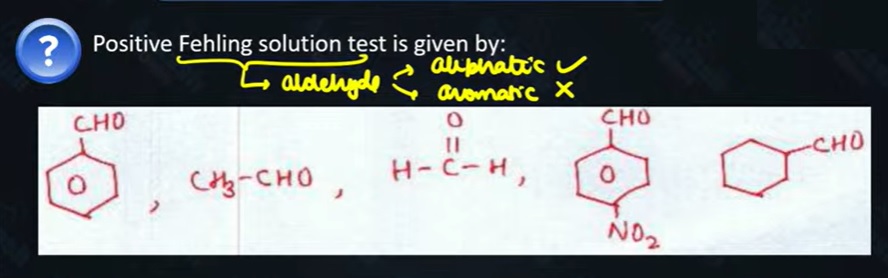 ?
Positive Fehling solution test is given by:
→ aldehyde → aliphatic ✓
→ aromatic ✗
CHO
O
CHO
CHO
O , CH3-CHO , H-C-H, O
NO2